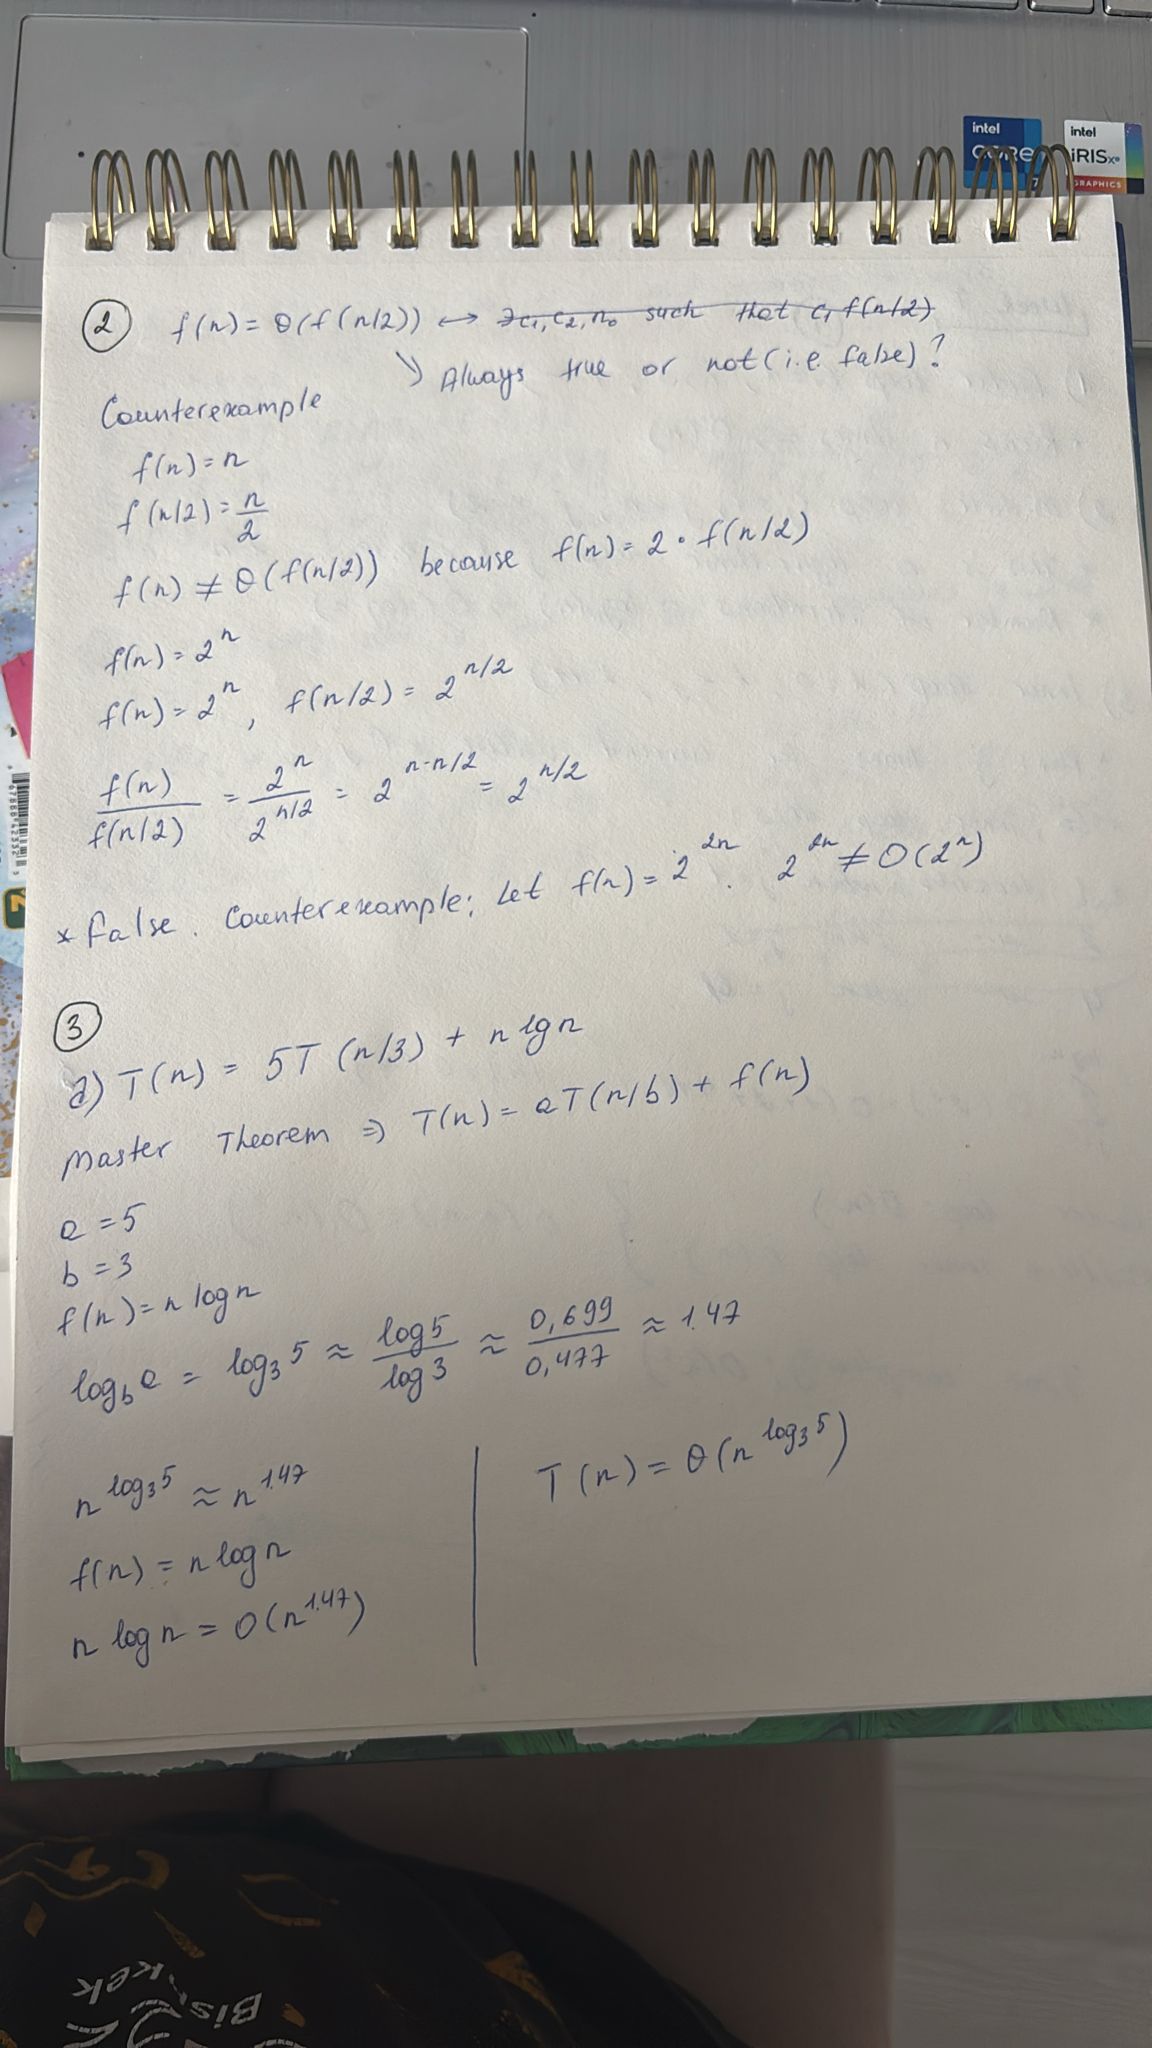 intel
CORE
i7
intel
iRISxe
GRAPHICS
② f(n) = Θ(f(n/2)) ↔ ∃c₁, c₂, n₀ such that c₁ f(n/2)
↘ Always true or not (i.e. false)?
Counterexample
f(n) = n
f(n/2) = n/2
f(n) ≠ Θ(f(n/2)) because f(n) = 2 · f(n/2)
f(n) = 2^n
f(n) = 2^n, f(n/2) = 2^(n/2)
f(n)/f(n/2) = 2^n/2^(n/2) = 2^(n-n/2) = 2^(n/2)
* False. Counterexample; Let f(n) = 2^(2n). 2^(2n) ≠ O(2^n)
③
a) T(n) = 5T (n/3) + n lg n
Master Theorem ⇒ T(n) = aT(n/b) + f(n)
a = 5
b = 3
f(n) = n log n
log_b a = log₃ 5 ≈ log 5/log 3 ≈ 0,699/0,477 ≈ 1.47
n^(log₃ 5) ≈ n^1.47
f(n) = n log n
n log n = O(n^1.47)
T(n) = Θ(n^(log₃ 5))
Bis
kek